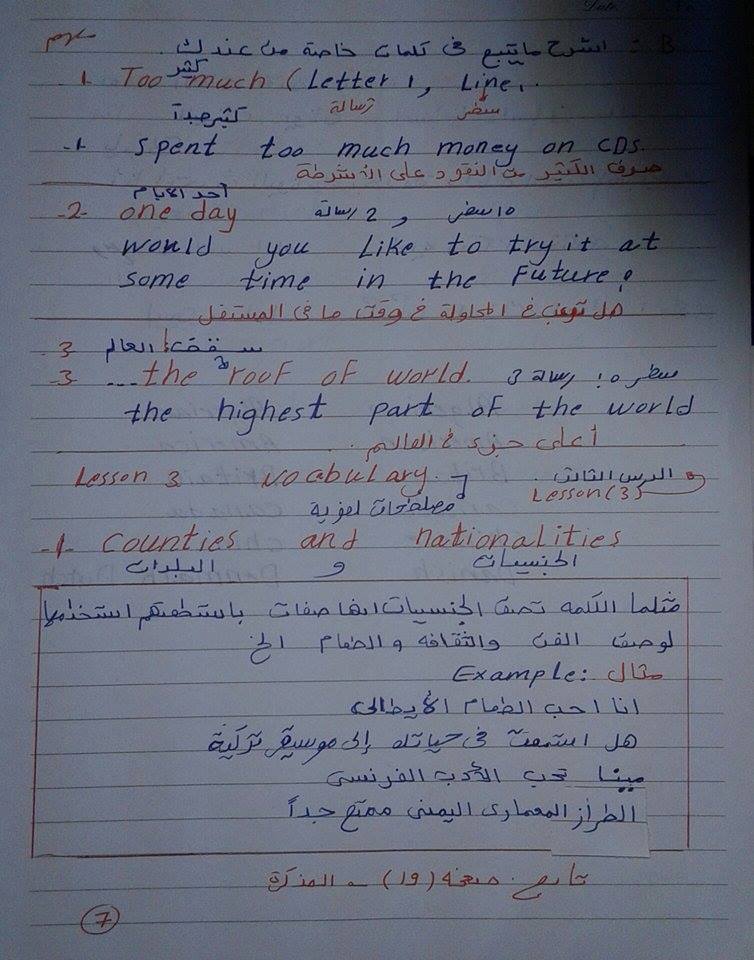 B: اشرح ما يتبع في كلمات خاصة من عندك.
كثير
1. Too much (Letter 1, Line 1.
كثير جداً رسالة سطر
-1 spent too much money on CDs.
صرف الكثير من النقود على الأشرطة
أحد الايام
-2- one day 2 رسالة و 10 سطر
would you Like to try it at
some time in the Future?
هل ترغب في المحاولة في وقت ما في المستقبل
3- سقف العالم
-3 ...the roof of world. رسالة 3 سطر 15
the highest part of the world
أعلى جزء في العالم.
Lesson 3 vocabulary. الدرس الثالث
Lesson (3)
مصطلحات لغوية
-1- counties and nationalities
البلدات و الجنسيات
مثلما الكلمه تصف الجنسيات انها صفات باستطعتهم استخدامها
لوصف الفن والثقافه والطعام الخ
Example: مثال
انا احب الطعام الأيطالي
هل استمعت في حياتك إلى موسيقى تركية
تحب الأدب الفرنسي
الطراز المعماري اليمني ممتع جداً
تابع صفحة (19) - المذكرة
7